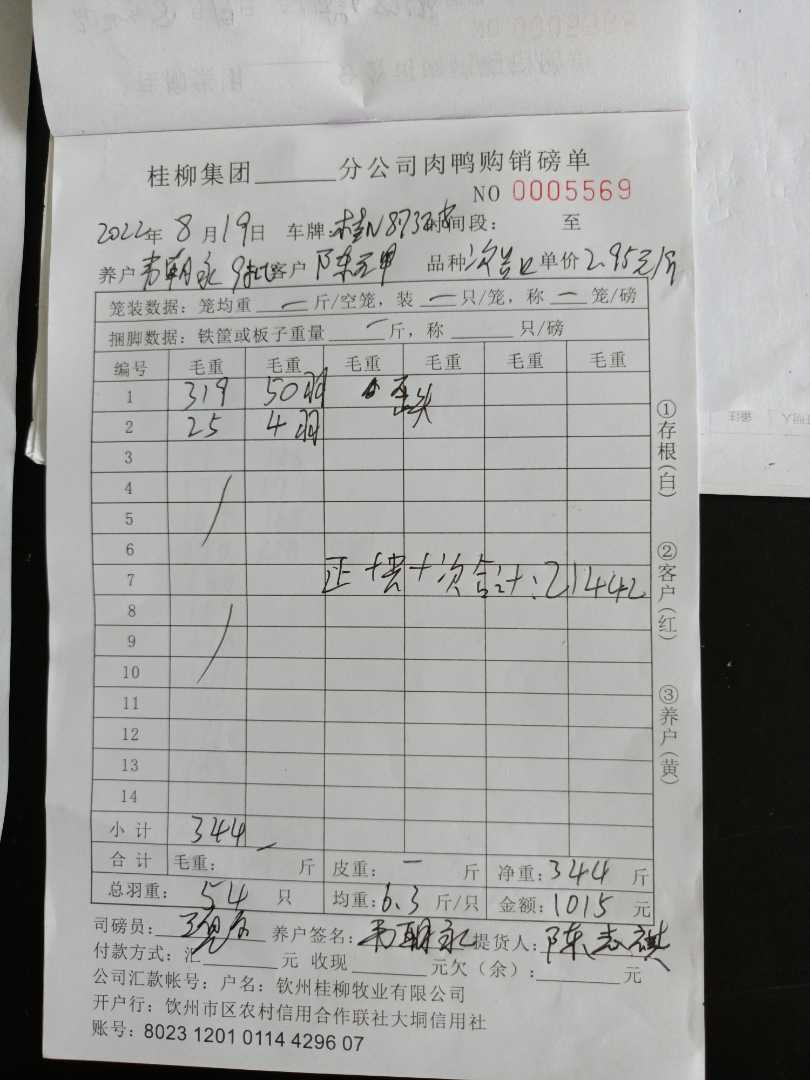 桂柳集团______分公司肉鸭购销磅单
NO 0005569
2022年 8月19日 车牌:桂N873 时间段: 至
养户韦朝永9批 客户 陈 品种次 单价2.95元/斤
笼装数据:笼均重 一 斤/空笼,装 一 只/笼,称 一 笼/磅
捆脚数据:铁筐或板子重量 一 斤,称____只/磅
编号 毛重 毛重 毛重 毛重 毛重 毛重
1 319 50羽 歪头
2 25 4羽
3
4
5
6
7 正+黄+次合计:21442
8
9
10
11
12
13
14
小计 344
合计 毛重: 一 斤 皮重: 一 斤 净重:344 斤
总羽重: 54 只 均重:6.3 斤/只 金额:1015 元
司磅员: 养户签名:韦朝永 提货人:陈志祺
付款方式:汇______元 收现______元欠(余):______元
公司汇款帐号:户名:钦州桂柳牧业有限公司
开户行:钦州市区农村信用合作联社大垌信用社
账号:8023 1201 0114 4296 07
①存根(白)
②客户(红)
③养户(黄)